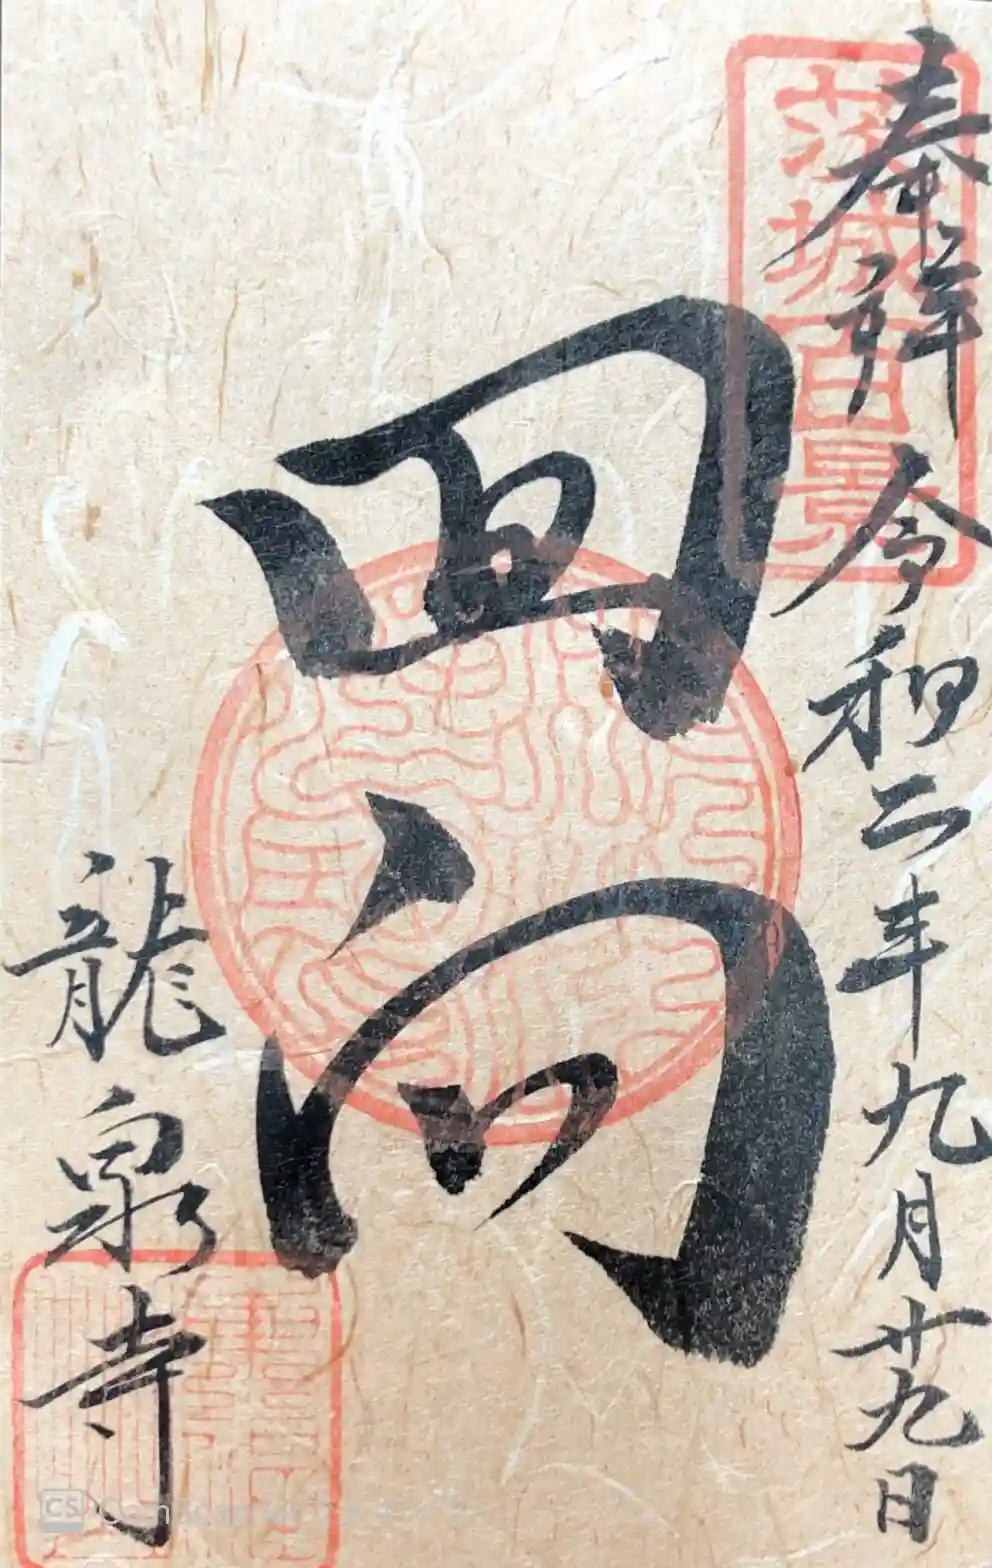 茨城百景
奉拝 令和二年九月廿九日
回向
龍泉寺
CS CamScanner